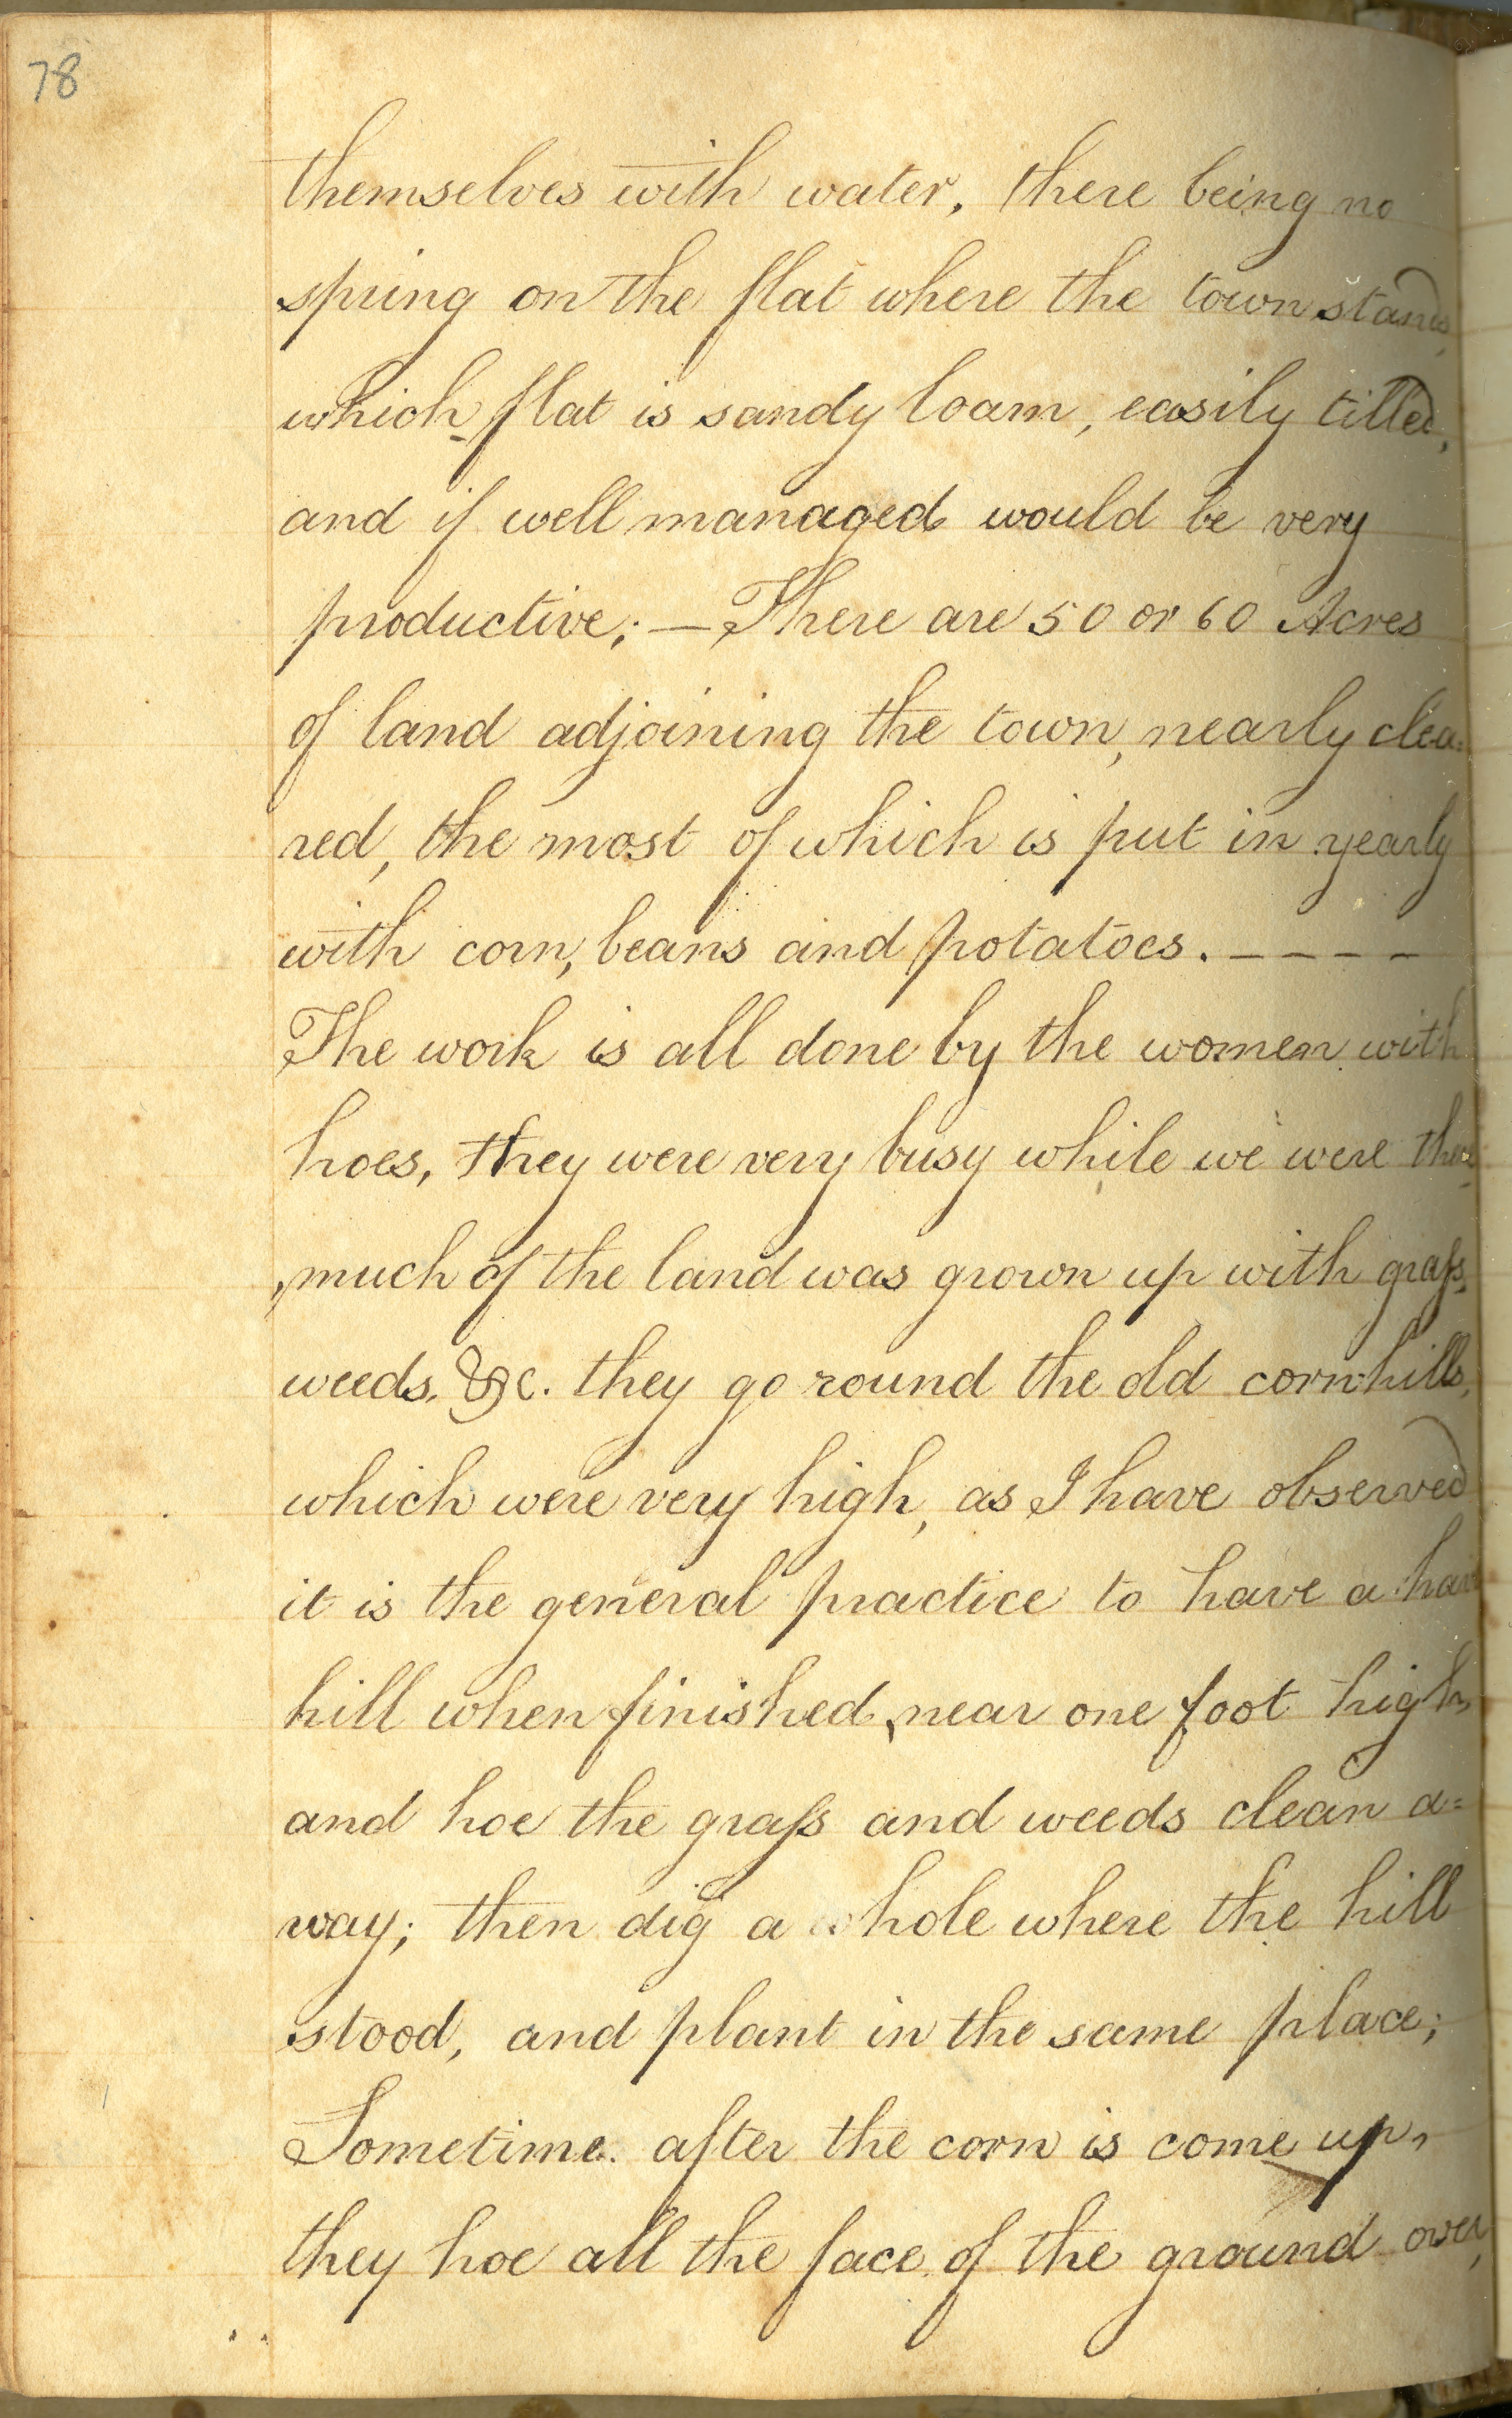 78
themselves with water, there being no
spring on the flat where the town stands,
which flat is sandy loam, easily tilled,
and if well managed would be very
productive; — There are 50 or 60 Acres
of land adjoining the town, nearly clea=
red, the most of which is put in yearly
with corn, beans and potatoes. – – – –
The work is all done by the women with
hoes, they were very busy while we were there
, much of the land was grown up with grass,
weeds, &c. they go round the old cornhills,
which were very high, as I have observed
it is the general practice to have a
hill when finished, near one foot high,
and hoe the grass and weeds clean a=
way; then dig a hole where the hill
stood, and plant in the same place;
Sometime after the corn is come up,
they hoe all the face of the ground over,